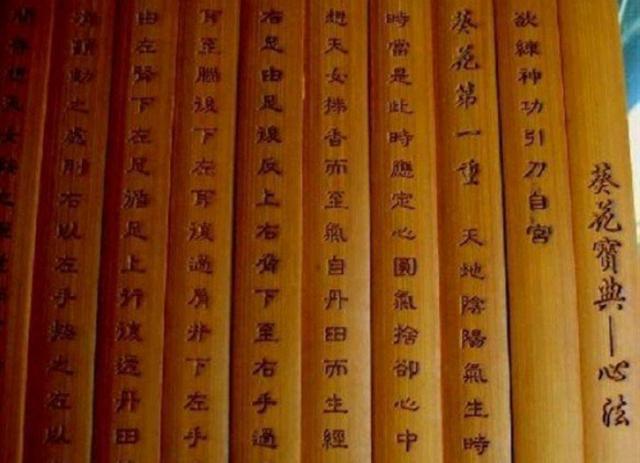 葵花寶典—心法
欲練神功引刀自宮
葵花第一重 天地陰陽氣生時
時當是此時應定心圓氣捨卻心中
想天女 香而至氣自丹田而生經
右足由足後反上右 下至右手過
耳至腦後下左耳後過肩井下左手
由左 下左足循足上行復還丹田
顫動之處則右以左手熱之在以